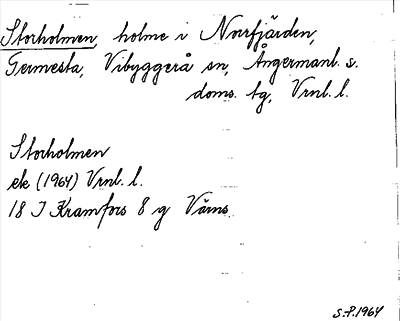 Storholmen, holme i Norrfjärden,
Germesta, Vibyggerå sn, Ångermanl. s.
doms. tg, Vrnl. l.
Storholmen
ek (1964) Vrnl. l.
18 I Kramfors 8 g Värns
S.P.1964